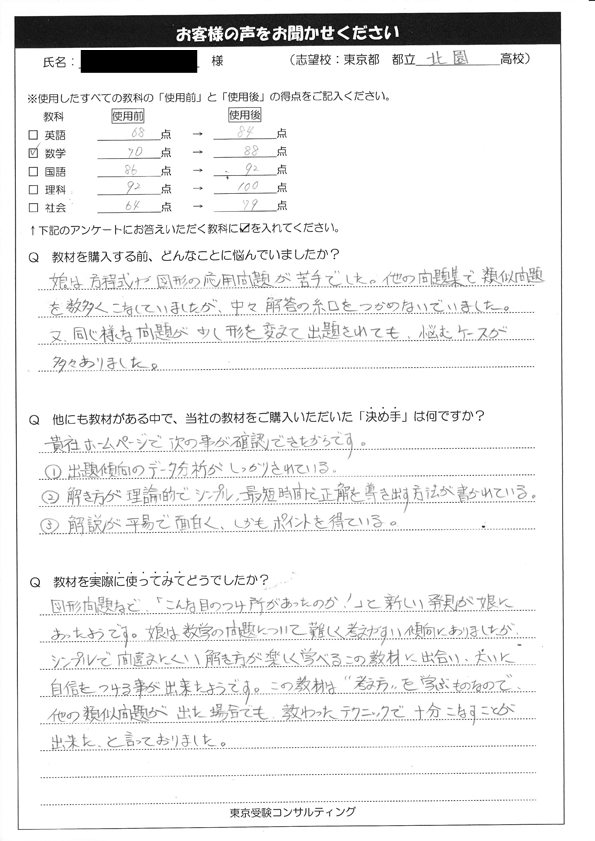 お客様の声をお聞かせください
氏名： 様 （志望校：東京都 都立 北園 高校）
※使用したすべての教科の「使用前」と「使用後」の得点をご記入ください。
教科 使用前 使用後
□ 英語 68点 → 84点
☑ 数学 70点 → 88点
□ 国語 86点 → 92点
□ 理科 92点 → 100点
□ 社会 64点 → 79点
↑下記のアンケートにお答えいただく教科に☑を入れてください。
Q 教材を購入する前、どんなことに悩んでいましたか？
娘は方程式や図形の応用問題が苦手でした。他の問題集で類似問題
を数多くこなしていましたが、中々解答の糸口をつかめないでいました。
又、同じ様な問題が少し形を変えて出題されても、悩むケースが
多々ありました。
Q 他にも教材がある中で、当社の教材をご購入いただいた「決め手」は何ですか？
貴社ホームページで次の事が確認できたからです。
① 出題傾向のデータ分析がしっかりされている。
② 解き方が理論的でシンプル。最短時間で正解を導き出す方法が書かれている。
③ 解説が平易で面白く、しかもポイントを得ている。
Q 教材を実際に使ってみてどうでしたか？
図形問題など、「こんな目のつけ所があったのか！」と新しい発見が娘に
あったようです。娘は数学の問題について難しく考えやすい傾向にありましたが、
シンプルで間違えにくい解き方が楽しく学べるこの教材に出合い、大いに
自信をつける事が出来たようです。この教材は“考え方”を学ぶものなので、
他の類似問題が出た場合でも、教わったテクニックで十分こなすことが
出来た、と言っておりました。
東京受験コンサルティング